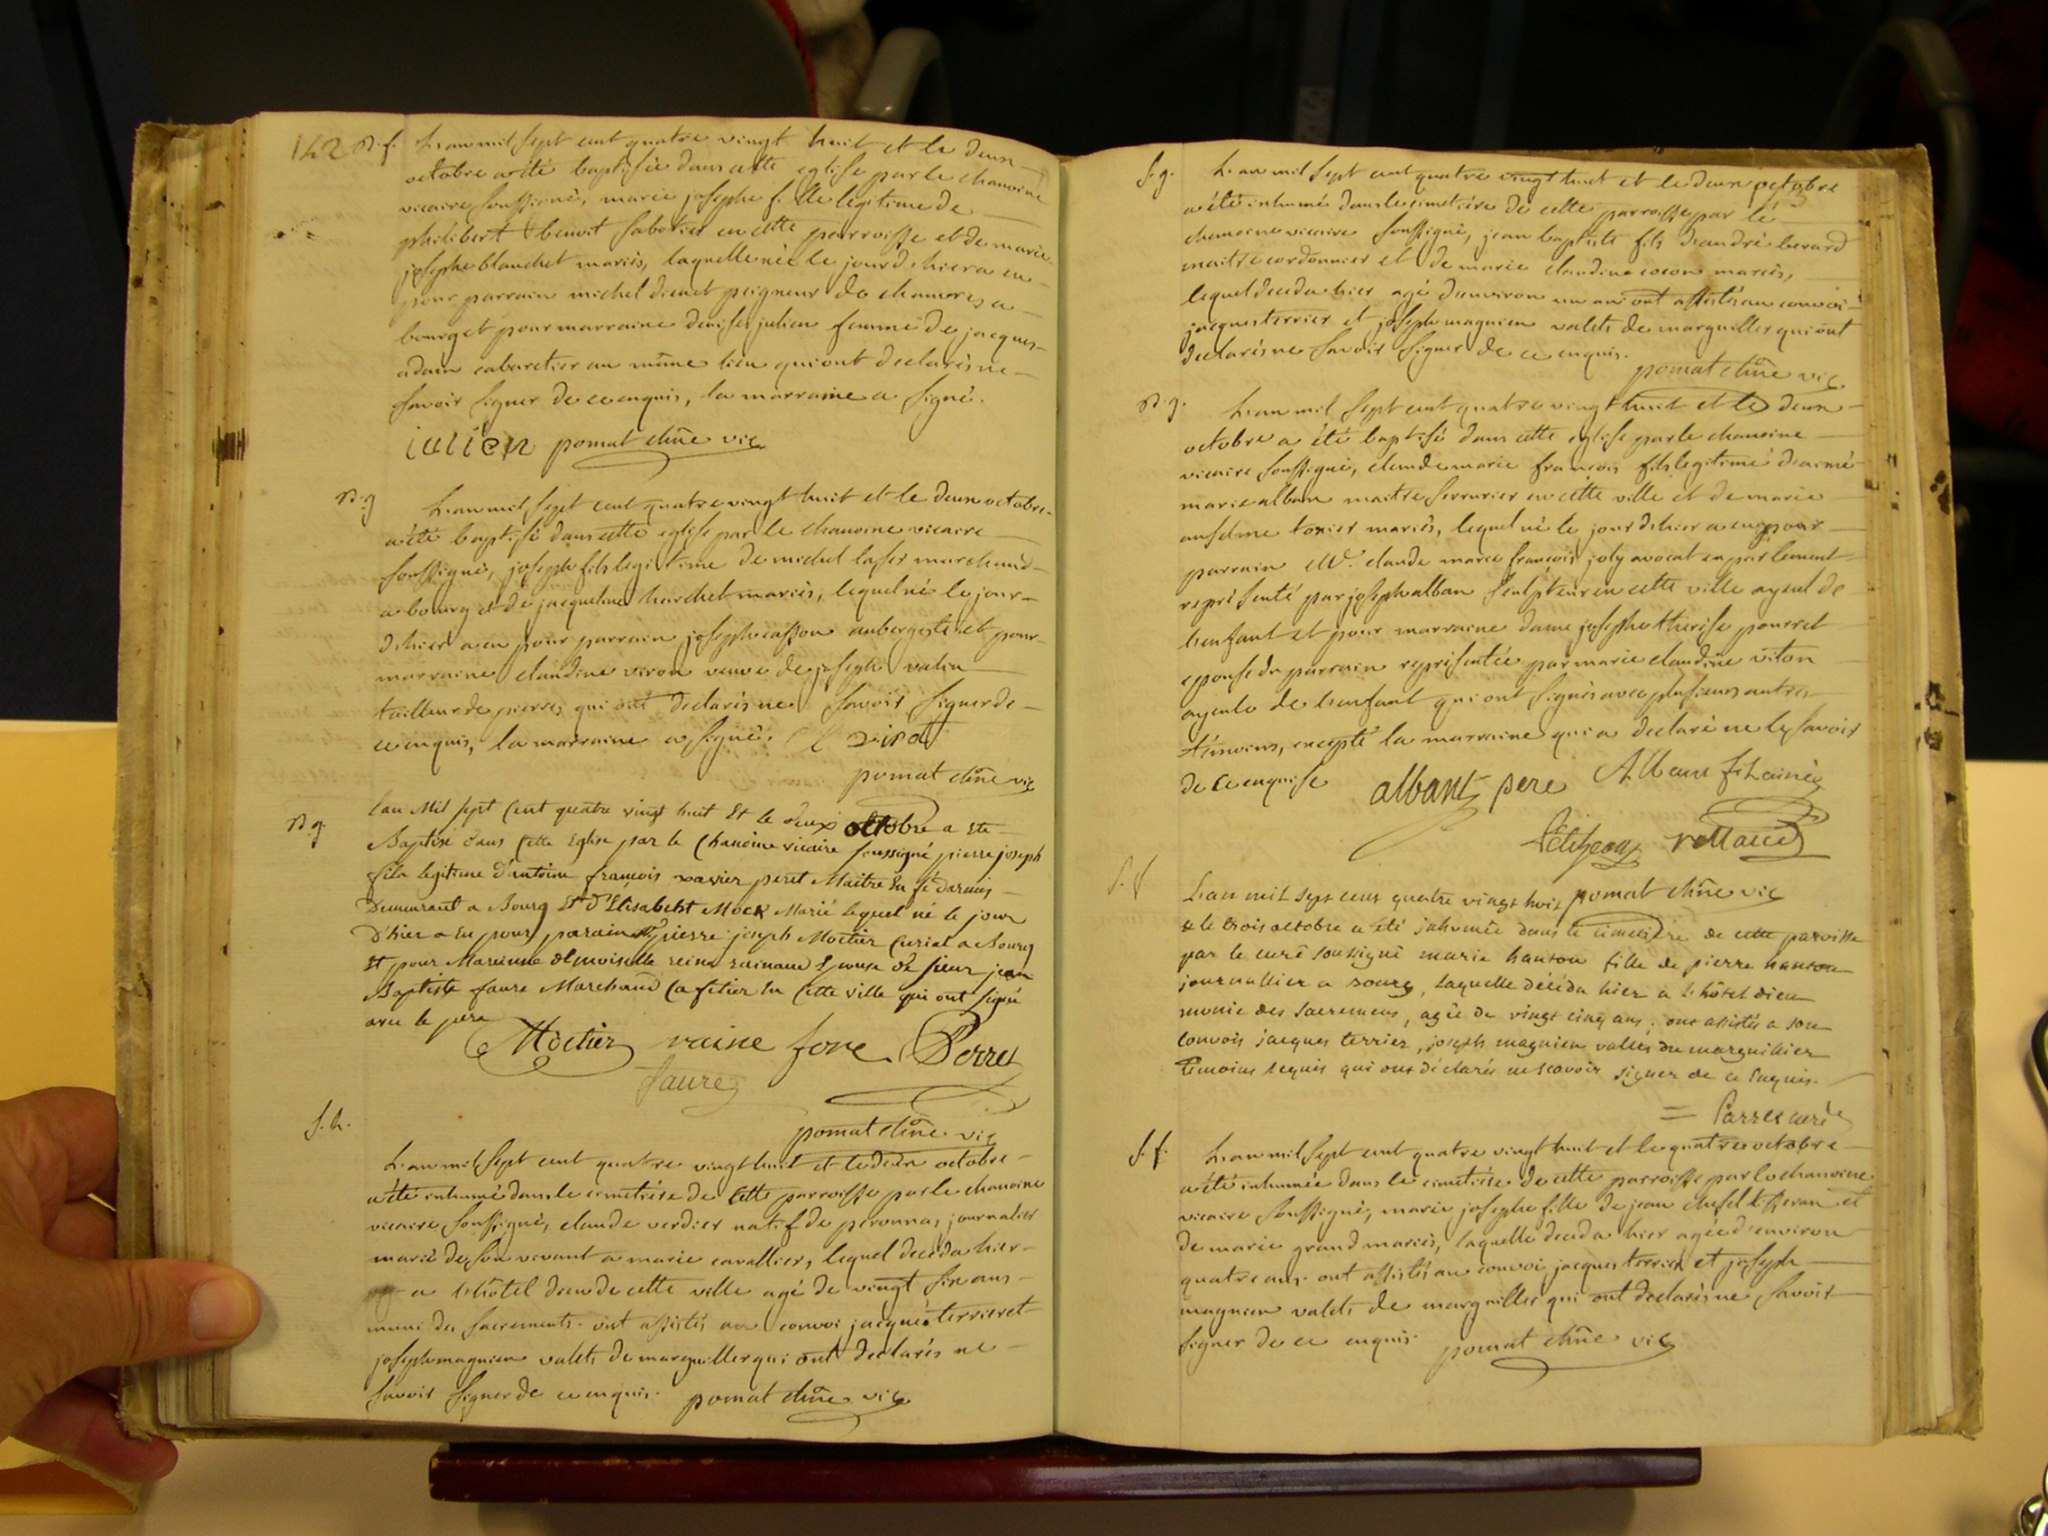 142 B. f. L'an mil sept cent quatre vingt huit et le deux
octobre a été baptisée dans cette eglise par le chanoine
vicaire soussigné, marie josephe fille legitime de
philibert benoit sabotier en cette parroisse et de marie
josephe blanchet mariés, laquelle née le jour d'hier a eu
pour parrain michel dienet peigneur de chanvres a
bourg et pour marraine denise julien femme de jacques
adam cabaretier au même lieu qui ont declarés ne
savoir signer de ce enquis, la marraine a signé.
iulien pomat chne vic
B. g L'an mil sept cent quatre vingt huit et le deux octobre
a été baptisé dans cette eglise par le chanoine vicaire
soussigné, joseph fils legitime de michel lafer marchand
a bourg et de jacqueline huchet mariés, lequel né le jour
d'hier a eu pour parrain joseph casson aubergiste et pour
marraine claudine viron veuve de joseph valin
tailleur de pierres qui ont declarés ne savoir signer de
ce enquis, la marraine a signé.
pomat chne vic
B. g. L'an Mil sept Cent quatre vingt huit Et le deux octobre a Eté
Baptisé dans Cette Eglise par le Chanoine vicaire soussigné pierre joseph
fils legitime d'antoine françois xavier peret Maitre En fé darmes
Demeurant a Bourg Et d'Elisabeht Mock Marié lequel né le jour
d'hier a Eu pour parain pierre joseph Moctier Curial a Bourg
Et pour Marienne demoiselle reine rainaud Epouse de sieur jean
Baptiste faure Marchand Cafetier En Cette ville qui ont signé
avec le pere
Moctier reine fore Perret
faure
pomat chne vic
S. h. L'an mil sept cent quatre vingt huit et le deux octobre
a été inhumé dans le cimetière de cette parroisse par le chanoine
vicaire soussigné, claude verdier natif de peronnas journalier
marié de son vivant a marie cavallier, lequel deceda hier
a l'hôtel dieu de cette ville agé de vingt six ans
muni des sacrements. ont assistés au convoi jacques terrier et
joseph magnien valets de marguillier qui ont declarés ne
savoir signer de ce enquis. pomat chne vic
S. g. L'an mil sept cent quatre vingt huit et le deux octobre
a été inhumé dans le cimetière de cette parroisse par le
chanoine vicaire soussigné, jean baptiste fils d'andré berard
maitre cordonnier et de marie claudine cocon mariés,
lequel deceda hier agé d'environ un an ont assistés au convoi
jacques terrier et joseph magnien valets de marguillier qui ont
declarés ne savoir signer de ce enquis.
pomat chne vic
B. g. L'an mil sept cent quatre vingt huit et le deux
octobre a été baptisé dans cette eglise par le chanoine
vicaire soussigné, claude marie françois fils legitime d'aimé
marie alban maitre serrurier en cette ville et de marie
anselme tonier mariés, lequel né le jour d'hier a eu pour
parrain Mr. claude marie françois joly avocat en parlement
représenté par joseph alban sculpteur en cette ville ayeul de
l'enfant et pour marraine dame josephe therese pourret
epouse du parrain représentée par marie claudine viton
ayeule de l'enfant qui ont signés avec plusieurs autres
témoins, excepté la marraine qui a declaré ne le savoir
de ce enquise albant pere Alban fils ainé
Petitjean rolland
pomat chne vic
S. f L'an mil sept cens quatre vingt huit
& le trois octobre a été inhumée dans le cimetière de cette paroisse
par le curé soussigné marie hanton fille de pierre hanton
journallier a Bourg, laquelle décéda hier a l'hôtel dieu
munie des sacremens, agée de vingt cinq ans; ont assistés a son
convois jacques terrier, joseph magnien vallets du marguillier
Témoins requis qui ont déclarés ne scavoir signer de ce Enquis.
= Parret curé
S. f. L'an mil sept cent quatre vingt huit et le quatre octobre
a été inhumée dans le cimetière de cette parroisse par le chanoine
vicaire soussigné, marie josephe fille de jean chusel tisseran et
de marie grand mariés, laquelle deceda hier agée d'environ
quatre ans. ont assistés au convoi jacques terrier et joseph
magnien valets de marguillier qui ont declarés ne savoir
signer de ce enquis. pomat chne vic